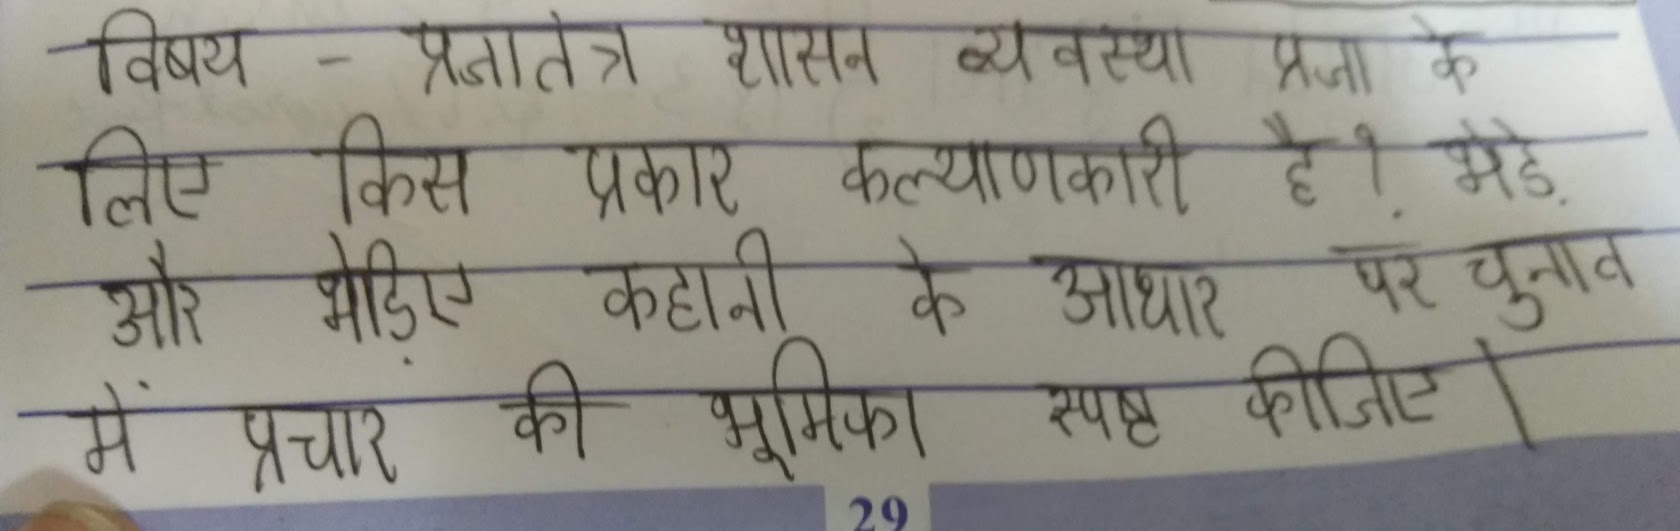 विषय - प्रजातंत्र शासन व्यवस्था प्रजा के
लिए किस प्रकार कल्याणकारी है? भेड़ें
और भेड़िए कहानी के आधार पर चुनाव
में प्रचार की भूमिका स्पष्ट कीजिए।
29